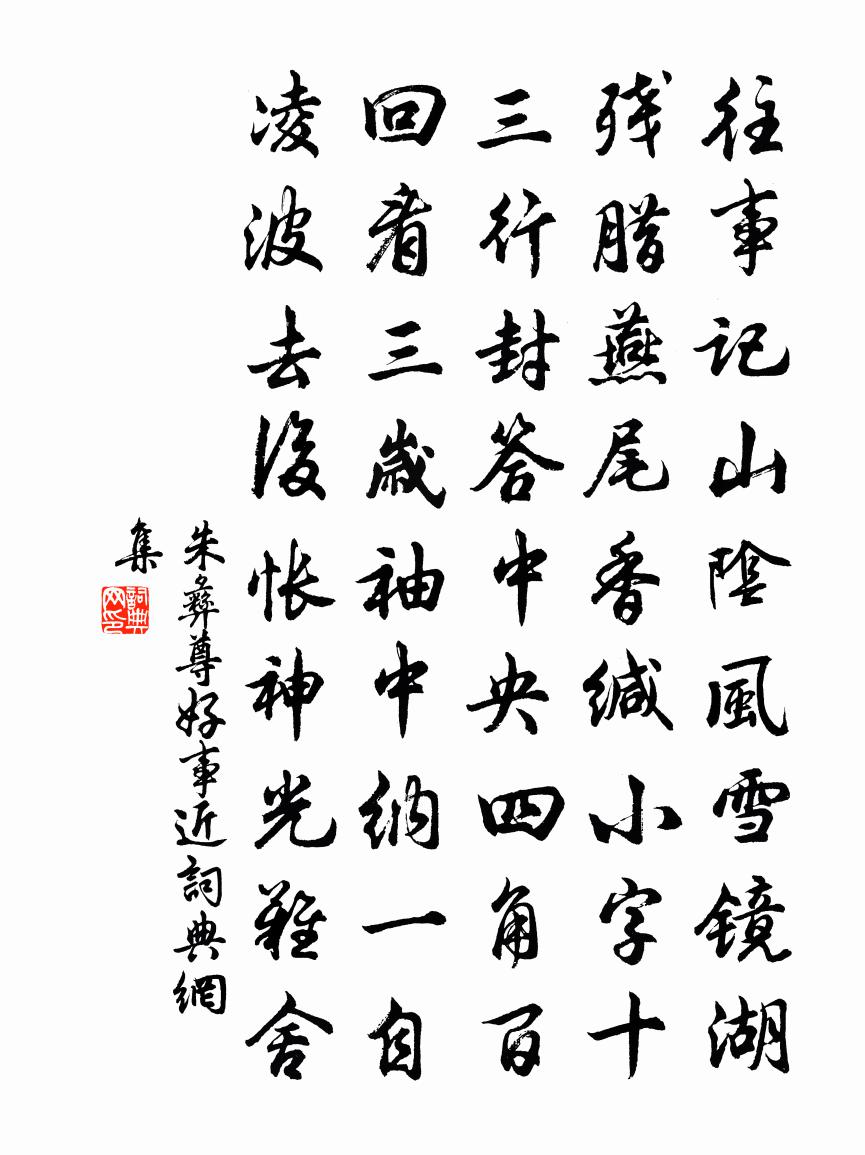 往事記山陰風雪鏡湖
残腊燕尾香缄小字十
三行封答中央四角百
回看三歲袖中納一自
凌波去後怅神光難舍
朱彝尊好事近詞典網
集
詞典
网印